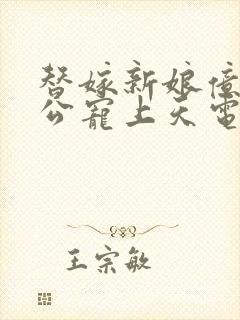 替嫁新娘億
公寵上天電
王宗敏